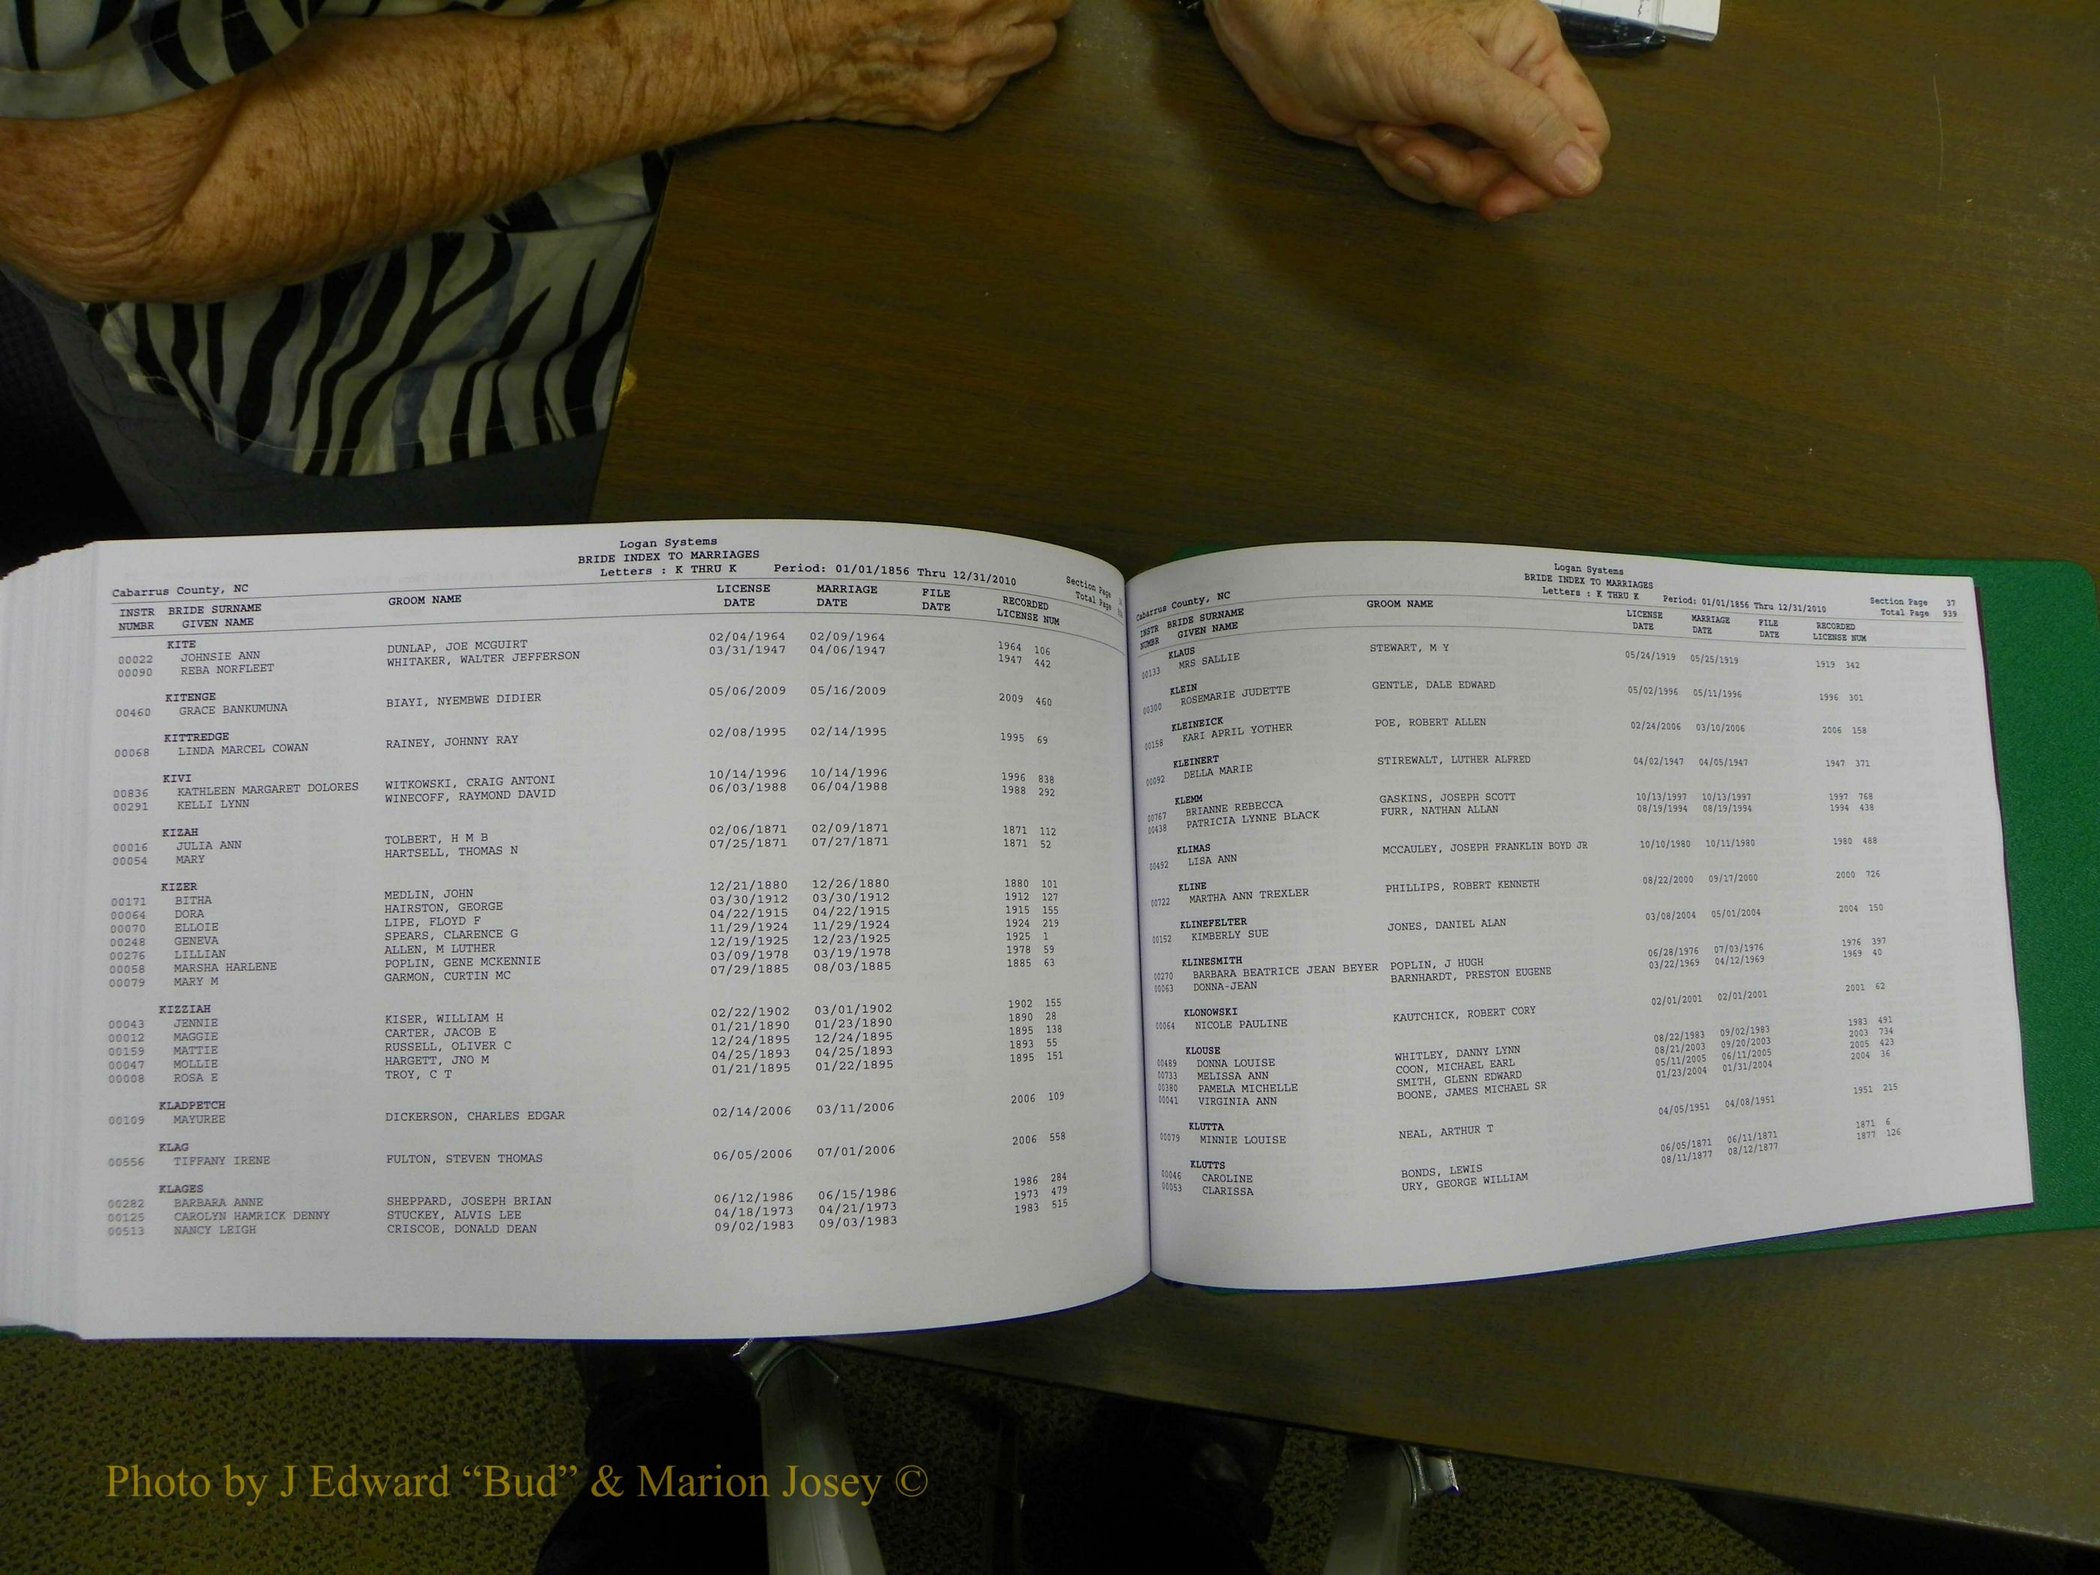 Logan Systems
BRIDE INDEX TO MARRIAGES
Letters : K THRU K Period: 01/01/1856 Thru 12/31/2010
Cabarrus County, NC Section Page
Total Page
INSTR BRIDE SURNAME GROOM NAME LICENSE MARRIAGE FILE RECORDED
NUMBR GIVEN NAME DATE DATE DATE LICENSE NUM
KITE
00022 JOHNSIE ANN DUNLAP, JOE MCGUIRT 02/04/1964 02/09/1964 1964 106
00090 REBA NORFLEET WHITAKER, WALTER JEFFERSON 03/31/1947 04/06/1947 1947 442
KITENGE
00460 GRACE BANKUMUNA BIAYI, NYEMBWE DIDIER 05/06/2009 05/16/2009 2009 460
KITTREDGE
00068 LINDA MARCEL COWAN RAINEY, JOHNNY RAY 02/08/1995 02/14/1995 1995 69
KIVI
00836 KATHLEEN MARGARET DOLORES WITKOWSKI, CRAIG ANTONI 10/14/1996 10/14/1996 1996 838
00291 KELLI LYNN WINECOFF, RAYMOND DAVID 06/03/1988 06/04/1988 1988 292
KIZAH
00016 JULIA ANN TOLBERT, H M B 02/06/1871 02/09/1871 1871 112
00054 MARY HARTSELL, THOMAS N 07/25/1871 07/27/1871 1871 52
KIZER
00171 BITHA MEDLIN, JOHN 12/21/1880 12/26/1880 1880 101
00064 DORA HAIRSTON, GEORGE 03/30/1912 03/30/1912 1912 127
00070 ELLOIE LIPE, FLOYD F 04/22/1915 04/22/1915 1915 155
00248 GENEVA SPEARS, CLARENCE G 11/29/1924 11/29/1924 1924 219
00276 LILLIAN ALLEN, M LUTHER 12/19/1925 12/23/1925 1925 1
00058 MARSHA HARLENE POPLIN, GENE MCKENNIE 03/09/1978 03/19/1978 1978 59
00079 MARY M GARMON, CURTIN MC 07/29/1885 08/03/1885 1885 63
KIZZIAH
00043 JENNIE KISER, WILLIAM H 02/22/1902 03/01/1902 1902 155
00012 MAGGIE CARTER, JACOB E 01/21/1890 01/23/1890 1890 28
00159 MATTIE RUSSELL, OLIVER C 12/24/1895 12/24/1895 1895 138
00047 MOLLIE HARGETT, JNO M 04/25/1893 04/25/1893 1893 55
00008 ROSA E TROY, C T 01/21/1895 01/22/1895 1895 151
KLADPETCH
00109 MAYUREE DICKERSON, CHARLES EDGAR 02/14/2006 03/11/2006 2006 109
KLAG
00556 TIFFANY IRENE FULTON, STEVEN THOMAS 06/05/2006 07/01/2006 2006 558
KLAGES
00282 BARBARA ANNE SHEPPARD, JOSEPH BRIAN 06/12/1986 06/15/1986 1986 284
00125 CAROLYN HAMRICK DENNY STUCKEY, ALVIS LEE 04/18/1973 04/21/1973 1973 479
00513 NANCY LEIGH CRISCOE, DONALD DEAN 09/02/1983 09/03/1983 1983 515
Logan Systems
BRIDE INDEX TO MARRIAGES
Letters : K THRU K Period: 01/01/1856 Thru 12/31/2010
Cabarrus County, NC Section Page 37
Total Page 939
INSTR BRIDE SURNAME GROOM NAME LICENSE MARRIAGE FILE RECORDED
NUMBR GIVEN NAME DATE DATE DATE LICENSE NUM
KLAUS
00133 MRS SALLIE STEWART, M Y 05/24/1919 05/25/1919 1919 342
KLEIN
00300 ROSEMARIE JUDETTE GENTLE, DALE EDWARD 05/02/1996 05/11/1996 1996 301
KLEINEICK
00158 KARI APRIL YOTHER POE, ROBERT ALLEN 02/24/2006 03/10/2006 2006 158
KLEINERT
00092 DELLA MARIE STIREWALT, LUTHER ALFRED 04/02/1947 04/05/1947 1947 371
KLEMM
00767 BRIANNE REBECCA GASKINS, JOSEPH SCOTT 10/13/1997 10/13/1997 1997 768
00438 PATRICIA LYNNE BLACK FURR, NATHAN ALLAN 08/19/1994 08/19/1994 1994 438
KLIMAS
00492 LISA ANN MCCAULEY, JOSEPH FRANKLIN BOYD JR 10/10/1980 10/11/1980 1980 488
KLINE
00722 MARTHA ANN TREXLER PHILLIPS, ROBERT KENNETH 08/22/2000 09/17/2000 2000 726
KLINEFELTER
00152 KIMBERLY SUE JONES, DANIEL ALAN 03/08/2004 05/01/2004 2004 150
KLINESMITH
00270 BARBARA BEATRICE JEAN BEYER POPLIN, J HUGH 06/28/1976 07/03/1976 1976 397
00063 DONNA-JEAN BARNHARDT, PRESTON EUGENE 03/22/1969 04/12/1969 1969 40
KLONOWSKI
00064 NICOLE PAULINE KAUTCHICK, ROBERT CORY 02/01/2001 02/01/2001 2001 62
KLOUSE
00489 DONNA LOUISE WHITLEY, DANNY LYNN 08/22/1983 09/02/1983 1983 491
00733 MELISSA ANN COON, MICHAEL EARL 08/21/2003 09/20/2003 2003 734
00380 PAMELA MICHELLE SMITH, GLENN EDWARD 05/11/2005 06/11/2005 2005 423
00041 VIRGINIA ANN BOONE, JAMES MICHAEL SR 01/23/2004 01/31/2004 2004 36
KLUTTA
00079 MINNIE LOUISE NEAL, ARTHUR T 04/05/1951 04/08/1951 1951 215
KLUTTS
00046 CAROLINE BONDS, LEWIS 06/05/1871 06/11/1871 1871 6
00053 CLARISSA URY, GEORGE WILLIAM 08/11/1877 08/12/1877 1877 126
Photo by J Edward “Bud” & Marion Josey ©